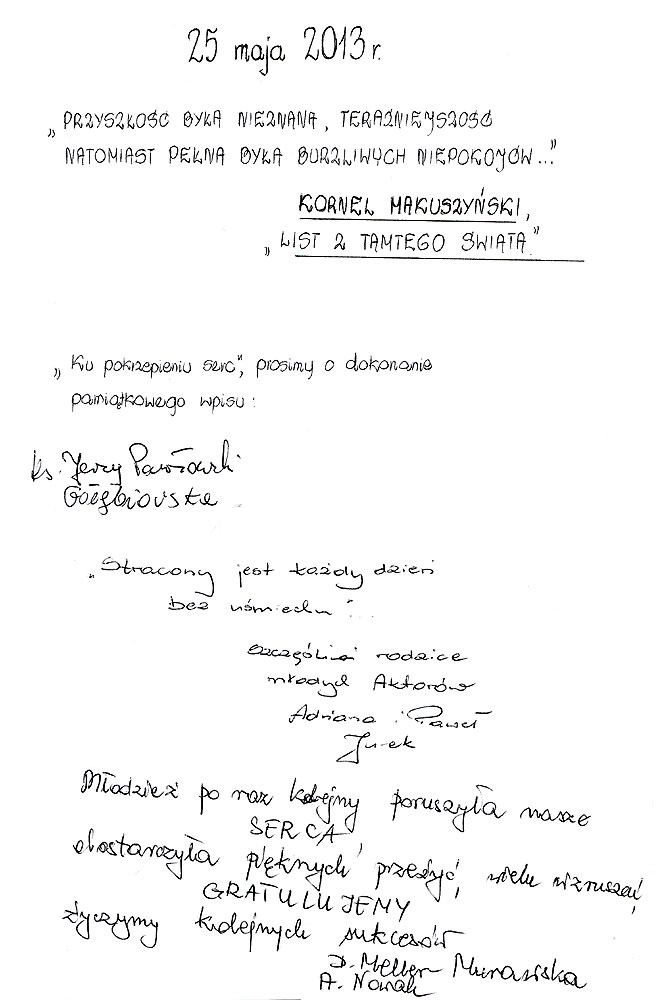 25 maja 2013 r.
„PRZYSZŁOŚĆ BYŁA NIEZNANA, TERAŹNIEJSZOŚĆ
NATOMIAST PEŁNA BYŁA BURZLIWYCH NIEPOKOJÓW..."
KORNEL MAKUSZYŃSKI,
„LIST Z TAMTEGO ŚWIATA"
„Ku pokrzepieniu serc", prosimy o dokonanie
pamiątkowego wpisu:
ks. Jerzy Pawłowski
„Stracony jest każdy dzień
bez uśmiechu"
szczęśliwi rodzice
młodych Aktorów
Adriana i Paweł
Jurek
Młodzież po raz kolejny poruszyła nasze
SERCA,
dostarczyła pięknych przeżyć, wielu wzruszeń,
GRATULUJEMY
życzymy kolejnych sukcesów
D. Meller Murawska
A. Nowak